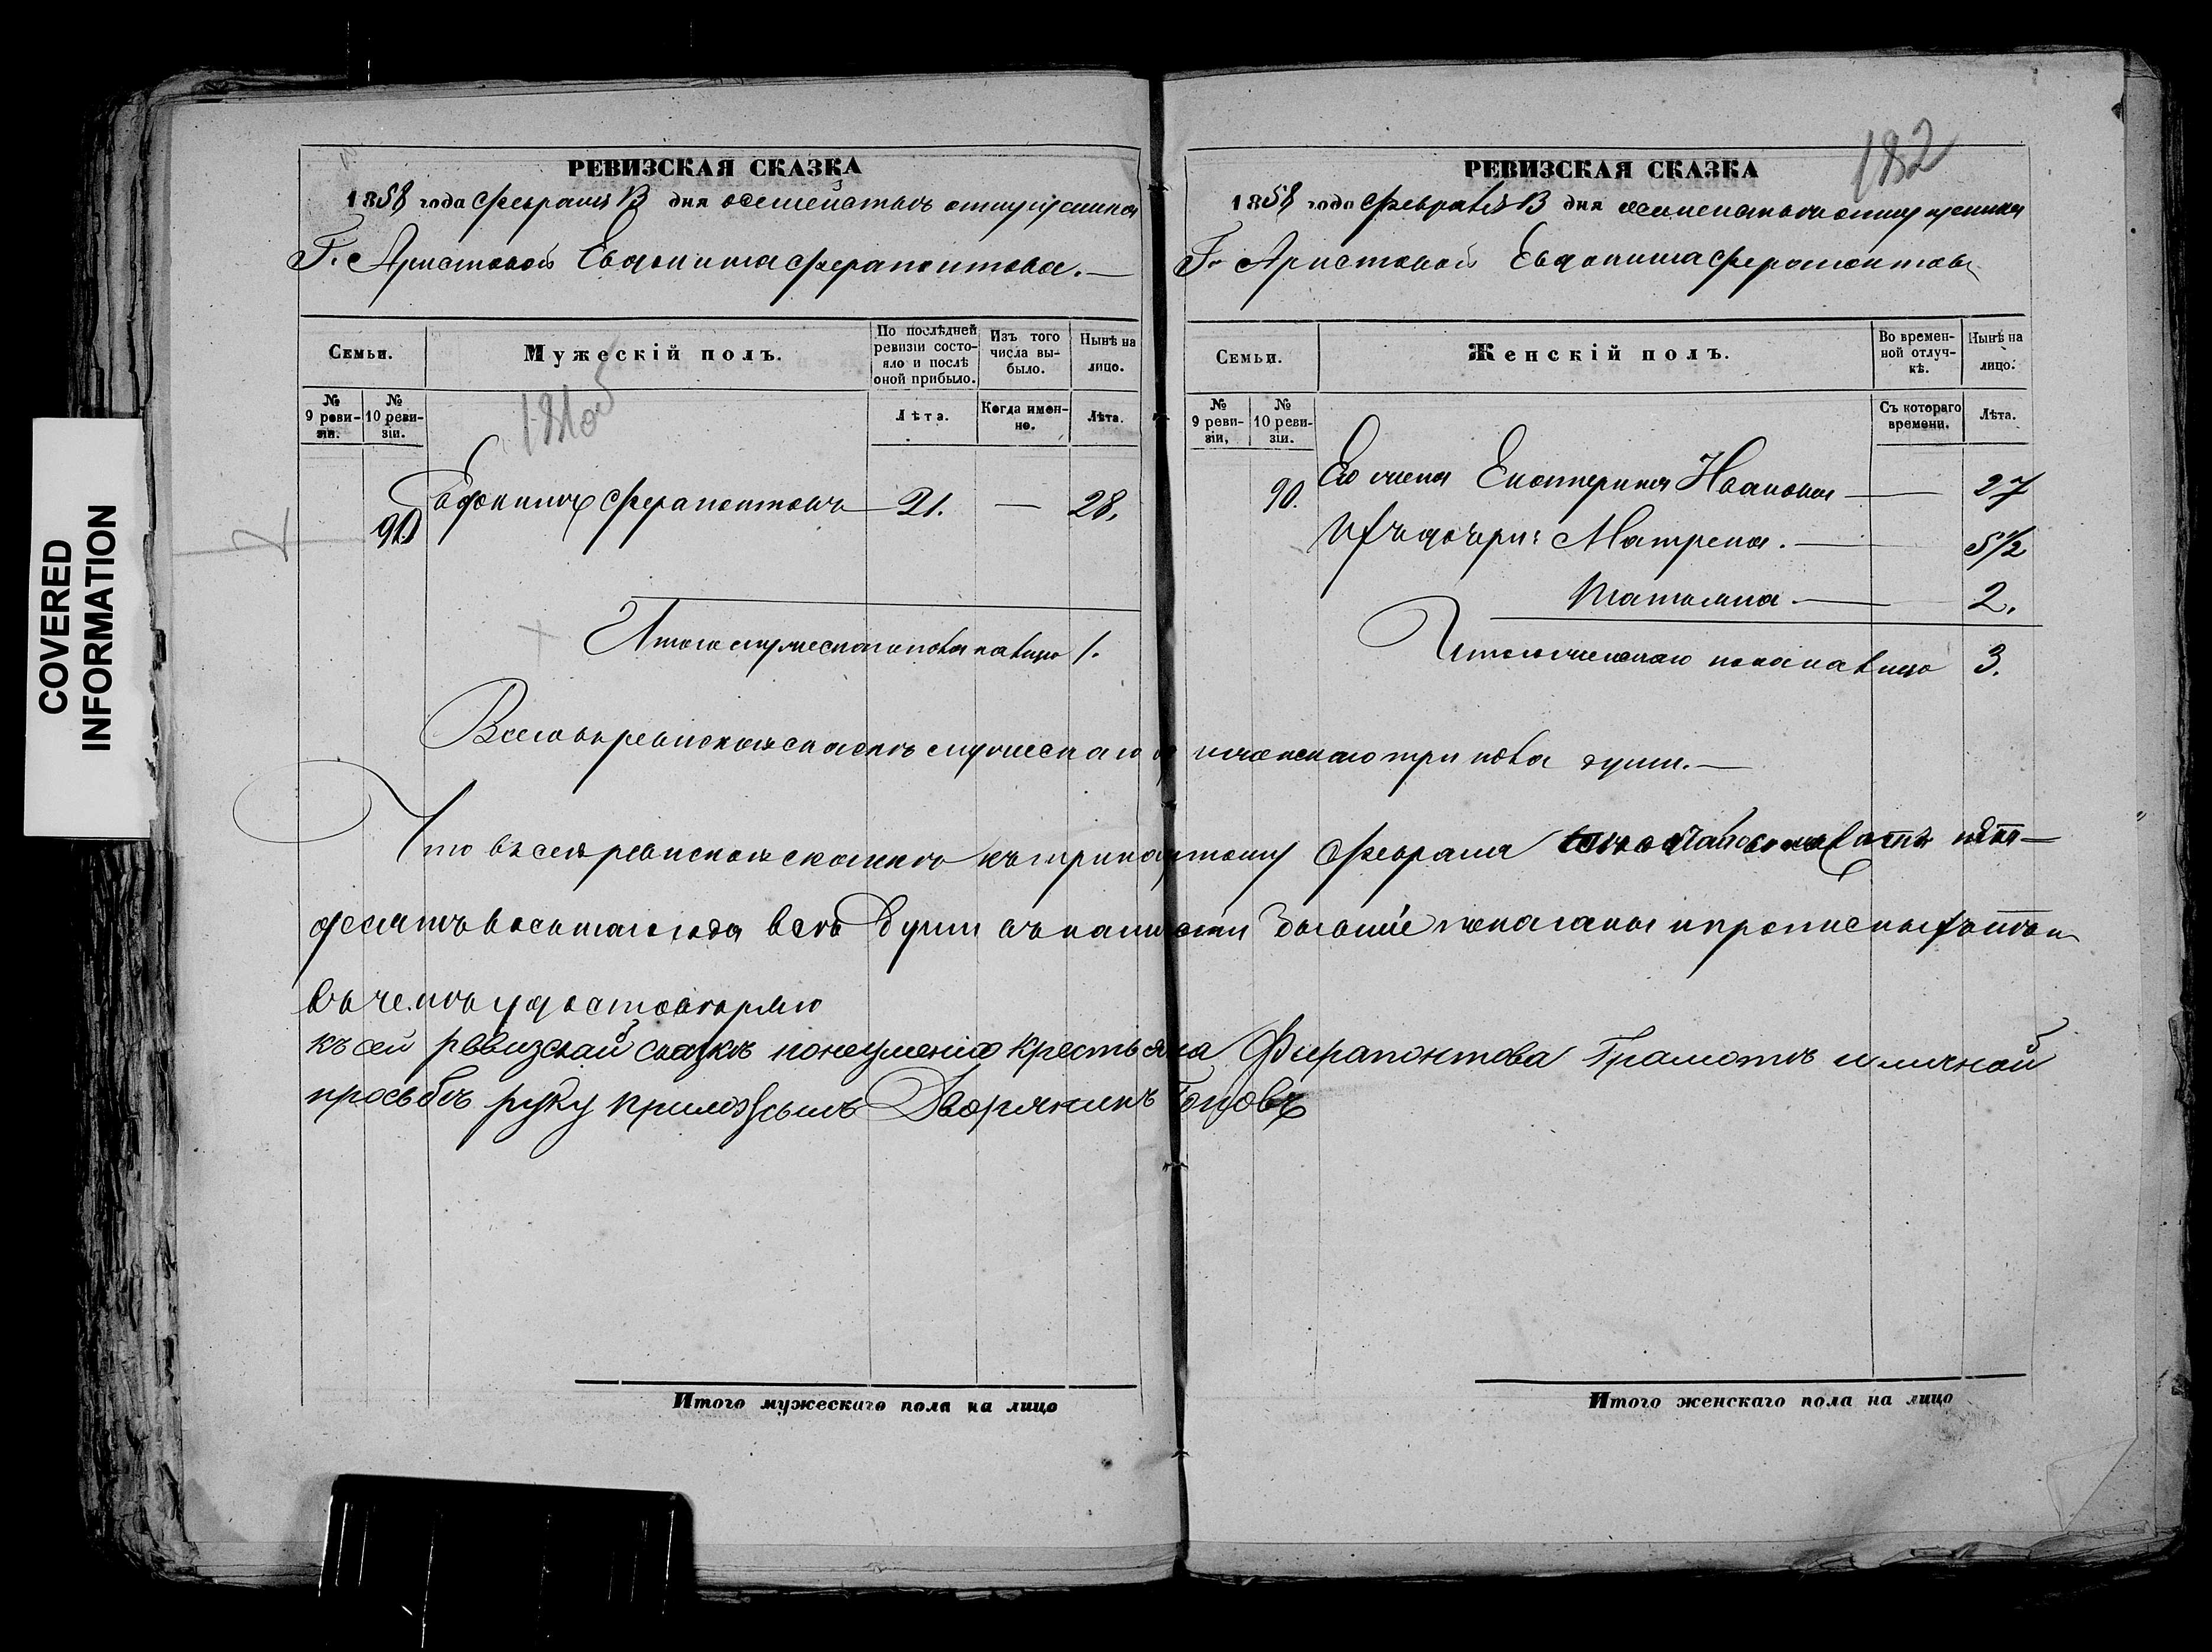 COVERED
INFORMATION
РЕВИЗСКАЯ СКАЗКА
1858 года Февраля 13 дня о семействѣ отпущенника
Г. Аристовой Евдокима Ферапонтова.—
Семьи.
Мужескій полъ.
По послѣдней ревизіи состояло и послѣ оной прибыло.
Изъ того числа выбыло.
Нынѣ на лицо.
№ 9 ревизіи.
№ 10 ревизіи.
Лѣта.
Когда именно.
Лѣта.
181 об
90. Евдокимъ Ферапонтовъ — 21. — 28.
Итого мужескаго пола на лицо 1.
182
РЕВИЗСКАЯ СКАЗКА
1858 года Февраля 13 дня о семействѣ отпущенника
Г. Аристовой Евдокима Ферапонтова
Семьи.
Женскій полъ.
Во временной отлучкѣ.
Нынѣ на лицо.
№ 9 ревизіи.
№ 10 ревизіи.
Съ котораго времени.
Лѣта.
90. Его жена Екатерина Иванова — 27
Ихъ дочери: Матрена. — 5 1/2
Татьяна — 2.
Итого женскаго пола на лицо 3.
Всего въ ревизской сказкѣ мужескаго и женскаго три пола души.—
Что въ сей ревизской сказкѣ къ тринадцатому Февраля пять-
десятъ восьмаго года всѣ души въ наличности показаны и прописныхъ
въ чемъ удостовѣряю
къ сей ревизской сказкѣ по неумению крестьяна Фирапонтова Грамотѣ и личной
просьбѣ руку приложилъ Дворянинъ Поповъ
Итого мужескаго пола на лицо
Итого женскаго пола на лицо